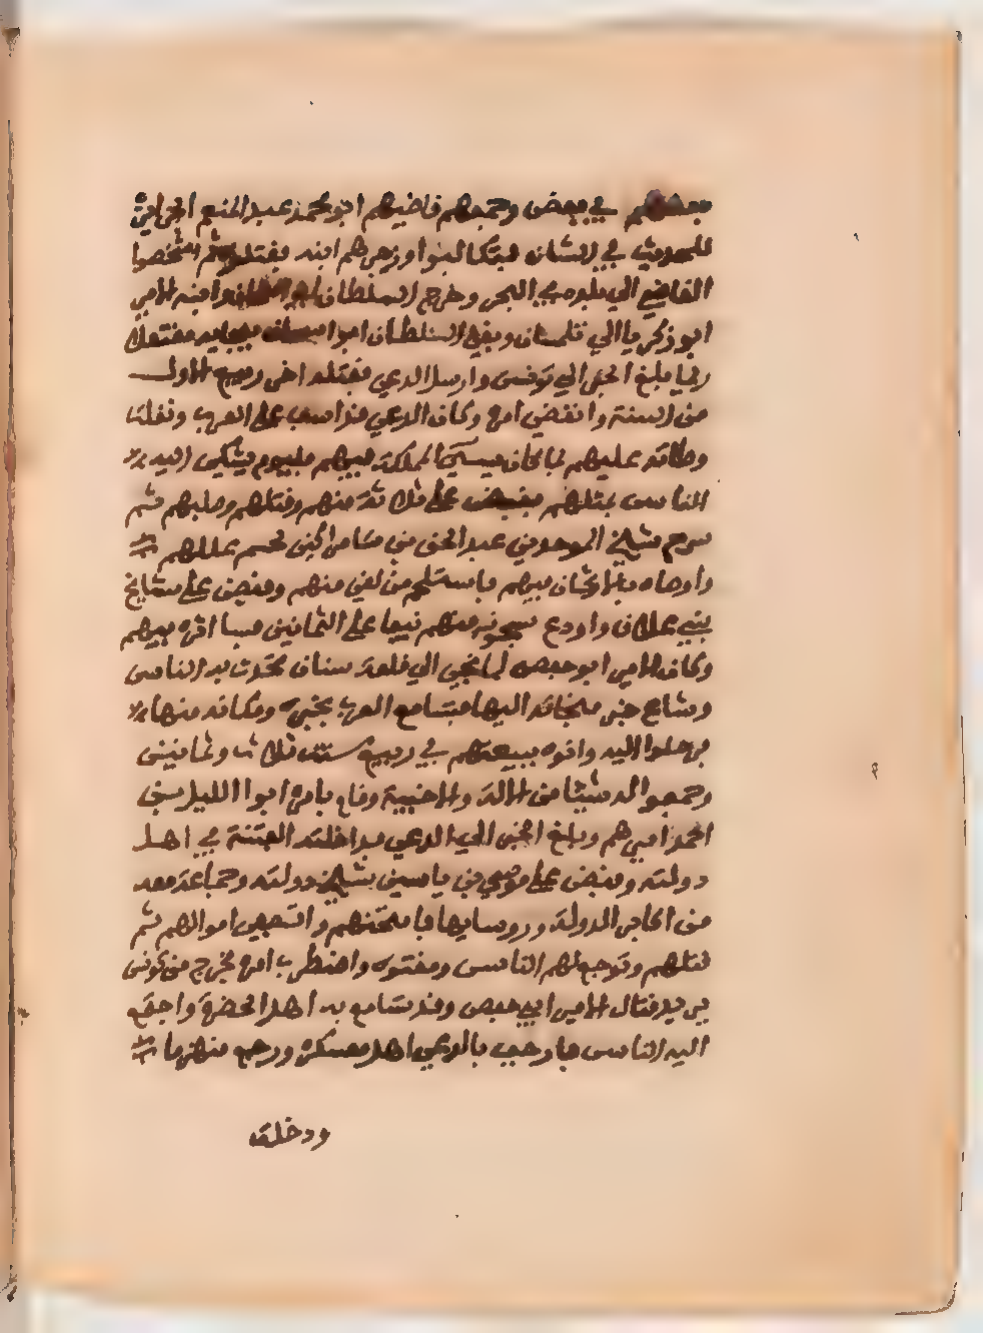 بعضهم في بعض وجمعهم قاضيهم ابو محمد عبد المنعم الجزايري
للحديث في الشان فتكالبوا وزجرهم ابنه فقتلوه ثم اشخصوا
القاضي الي بلده في البحر وخرج السلطان ابو اسحاق وابنه الامير
ابو زكريا الي تلمسان وبقي السلطان ابو اسحاق ببجاية معتقلا
ريثما بلغ الخبر الي تونس وارسل الدعي فقتله اخر ربيع الاول
من السنة وانقضي امره وكان الدعي قد اسف على العرب وثقلت
وطاته عليهم لما كان يسيء الملكة فيهم فليوم يشكي اليه
الناس عيثهم فقبض على ثلاثة منهم وقتلهم وصلبهم ثم
سرح شيخ الموحدين عبد الحق بن تافراكين لحسم عللهم
واوصاه بالاثخان فيهم فاستلحم من لقي منهم وقبض على مشايخ
بني علان واودع سجونه منهم نيفا على الثمانين فساء اثره فيهم
وكان الامير ابو حفص لما نجي الي قلعة سنان تحدث به الناس
وشاع خبر منجاته اليها فتسامع العرب بخبره ومكانه منها
فرحلوا اليه واتوه ببيعتهم في ربيع سنة ثلاث وثمانين
وجمعوا له شيئا من الالة والاخبية وقام بامره ابوا الليل بن
احمد اميرهم وبلغ الخبر الي الدعي فداخلته الفتنة في اهل
دولته وقبض على موسي بن ياسين شيخ دولته وجماعة معه
من اكابر الدولة وروسايها فامتحنهم واستصفي اموالهم ثم
قتلهم وتوجع لهم الناس ومقتوه واضطرب امره فخرج من تونس
يريد قتال الامير ابي حفص وقد تسامع به اهل الحضرة واجتمع
اليه الناس فارجف بالدعي اهل معسكره ورجع منهزما
ودخلت